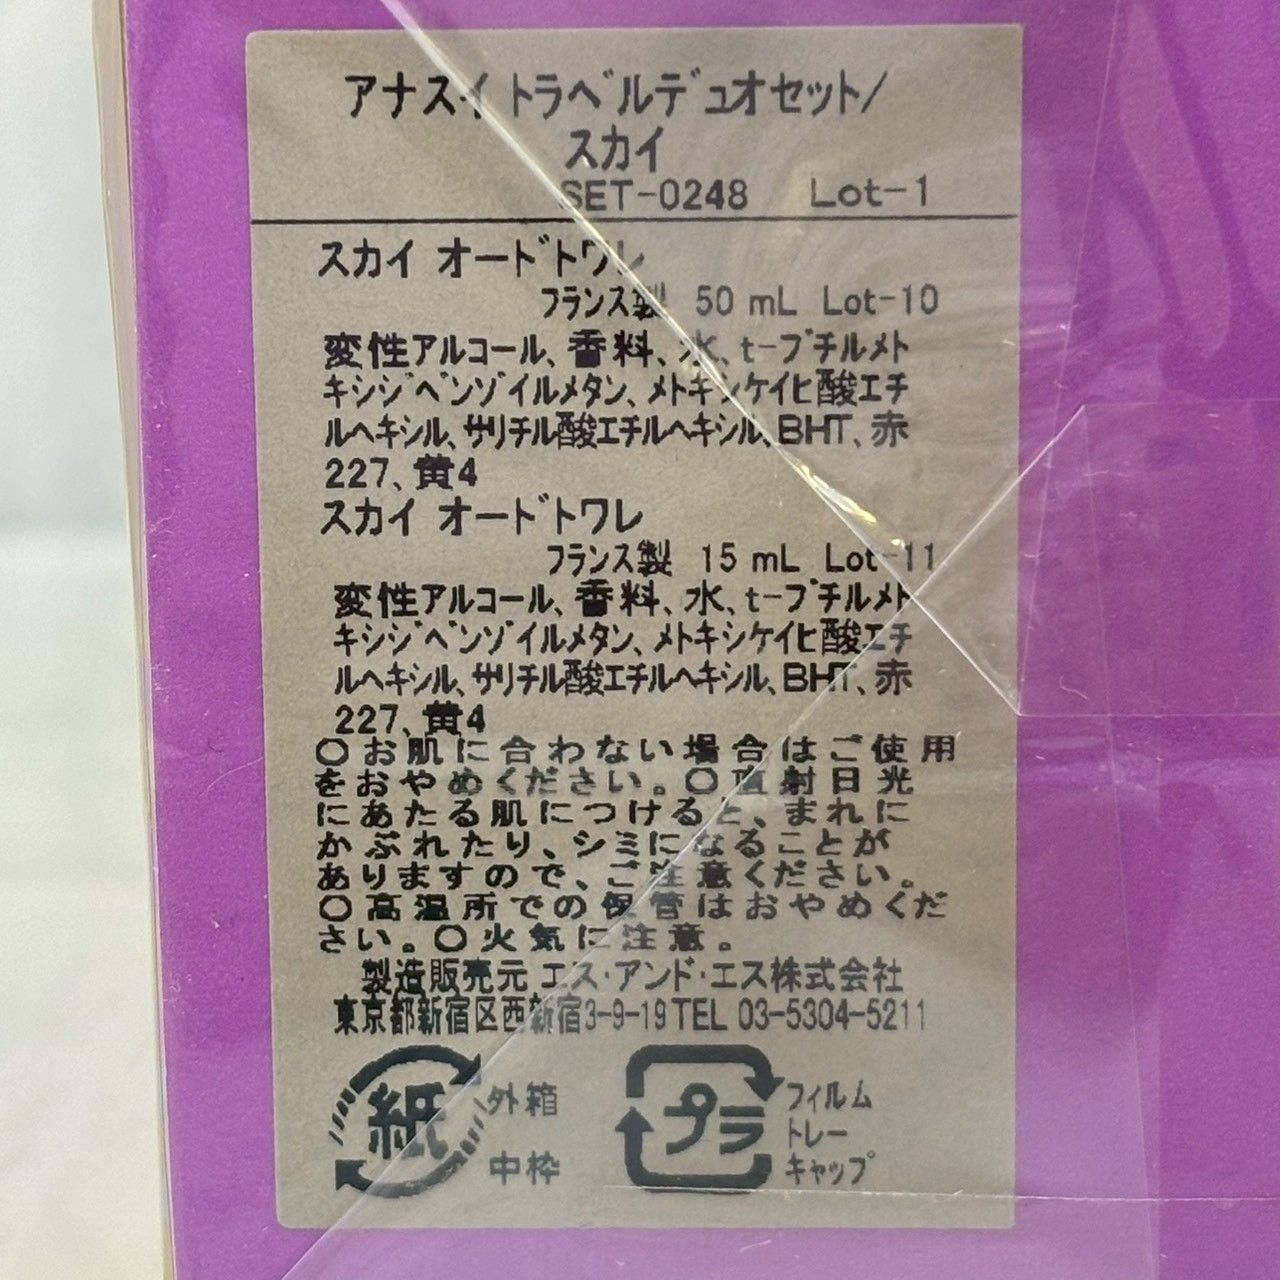 アナスイ トラベルデュオセット/
スカイ
SET-0248 Lot-1
スカイ オードトワレ
フランス製 50 mL Lot-10
変性アルコール、香料、水、t-ブチルメト
キシジベンゾイルメタン、メトキシケイヒ酸エチ
ルヘキシル、サリチル酸エチルヘキシル、BHT、赤
227、黄4
スカイ オードトワレ
フランス製 15 mL Lot-11
変性アルコール、香料、水、t-ブチルメト
キシジベンゾイルメタン、メトキシケイヒ酸エチ
ルヘキシル、サリチル酸エチルヘキシル、BHT、赤
227、黄4
○お肌に合わない場合はご使用
をおやめください。○直射日光
にあたる肌につけると、まれに
かぶれたり、シミになることが
ありますので、ご注意ください。
○高温所での保管はおやめくだ
さい。○火気に注意。
製造販売元 エス・アンド・エス株式会社
東京都新宿区西新宿3-9-19 TEL 03-5304-5211
紙 外箱
中枠
プラ フィルム
トレー
キャップ